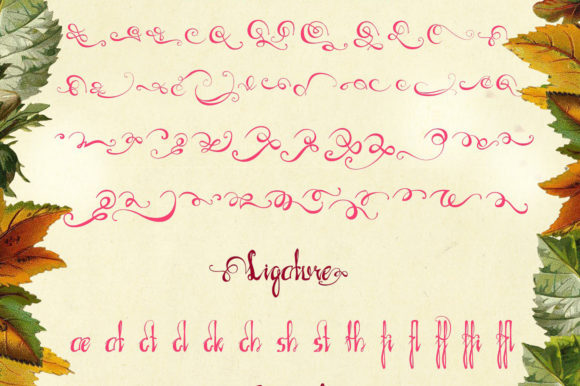 Ligature
æ at ct cl ck ch sh st th fi fl ff ffi ffl